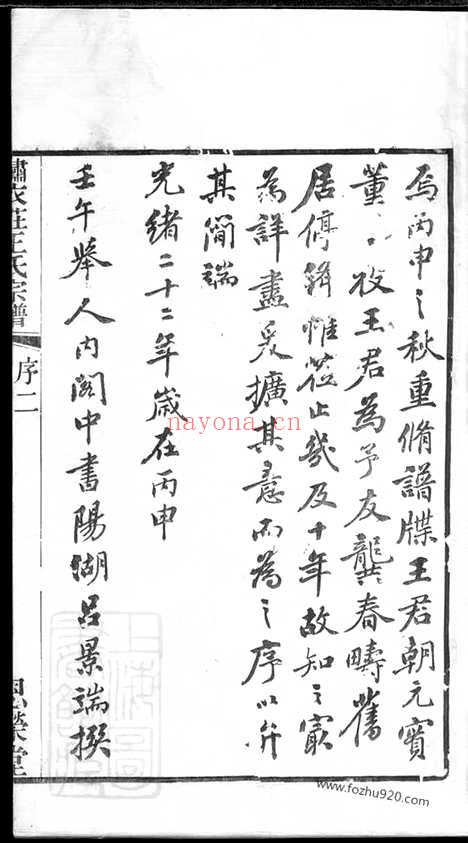 焉丙申之秋重脩譜牒王君朝元實
董其役王君為予友龔春疇舊
居停緝惟蒞止幾及十年故知之寔
為詳盡爰擴其意而為之序以弁
其簡端
光緒二十二年歲在丙申
壬午舉人內閣中書陽湖呂景端撰
繡衣莊王氏宗譜
序二
思榮堂
nayona.cn
www.fozhu920.com